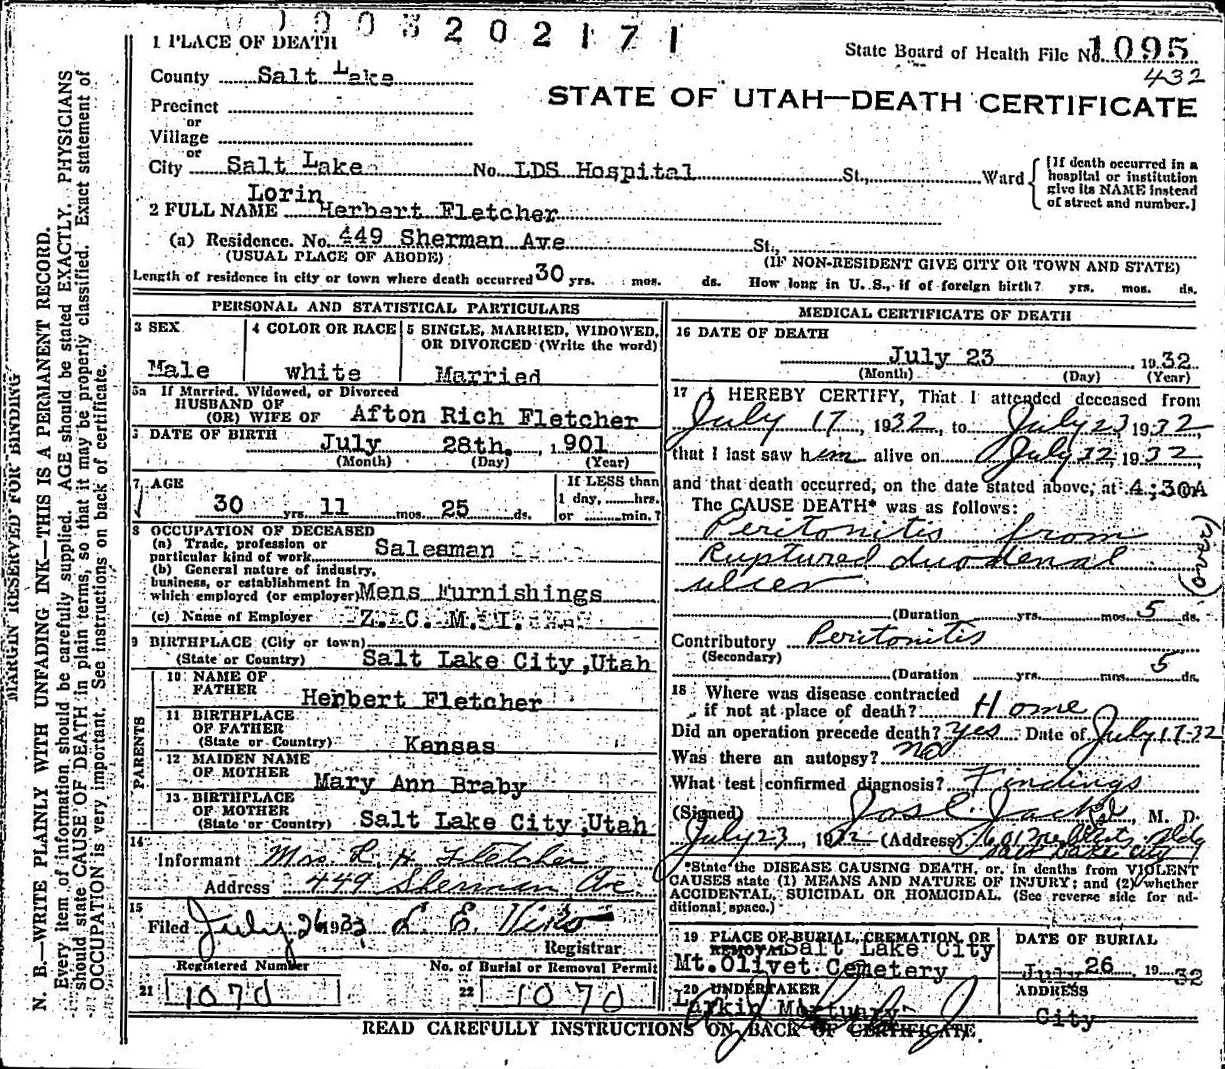 0003202171
1 PLACE OF DEATH
State Board of Health File No. 1095
432
County Salt Lake
STATE OF UTAH—DEATH CERTIFICATE
Precinct
or
Village
or
City Salt Lake No. LDS Hospital St., Ward
[If death occurred in a hospital or institution give its NAME instead of street and number.]
Lorin
2 FULL NAME Herbert Fletcher
(a) Residence. No. 449 Sherman Ave St.,
(USUAL PLACE OF ABODE) (IF NON-RESIDENT GIVE CITY OR TOWN AND STATE)
Length of residence in city or town where death occurred 30 yrs. mos. ds. How long in U. S., if of foreign birth? yrs. mos. ds.
PERSONAL AND STATISTICAL PARTICULARS
3 SEX
Male
4 COLOR OR RACE
white
5 SINGLE, MARRIED, WIDOWED, OR DIVORCED (Write the word)
Married
5a If Married, Widowed, or Divorced
HUSBAND OF
(OR) WIFE OF Afton Rich Fletcher
DATE OF BIRTH July 28th. , 1901
(Month) (Day) (Year)
7 AGE
30 yrs. 11 mos. 25 ds.
If LESS than
1 day, hrs.
or min.?
8 OCCUPATION OF DECEASED
(a) Trade, profession or
particular kind of work Salesman
(b) General nature of industry,
business, or establishment in
which employed (or employer) Mens Furnishings
(c) Name of Employer Z. C. M. I.
9 BIRTHPLACE (City or town)
(State or Country) Salt Lake City, Utah
PARENTS
10 NAME OF
FATHER Herbert Fletcher
11 BIRTHPLACE
OF FATHER
(State or Country) Kansas
12 MAIDEN NAME
OF MOTHER Mary Ann Braby
13 BIRTHPLACE
OF MOTHER
(State or Country) Salt Lake City, Utah
14
Informant Mrs. L. H. Fletcher
Address 449 Sherman Ave
15
Filed July 26 1932 L. E. Viko
Registrar
Registered Number No. of Burial or Removal Permit
21 1070 22 1070
MEDICAL CERTIFICATE OF DEATH
16 DATE OF DEATH
July 23 1932
(Month) (Day) (Year)
17 I HEREBY CERTIFY, That I attended deceased from
July 17, 1932, to July 23 1932
that I last saw him alive on July 22, 1932,
and that death occurred, on the date stated above, at 4:30A
The CAUSE DEATH* was as follows:
Peritonitis from
Ruptured duodenal
ulcer
(over)
(Duration yrs. mos. 5 ds.
Contributory Peritonitis
(Secondary)
(Duration yrs. mos. 5 ds.
18 Where was disease contracted
if not at place of death? Home
Did an operation precede death? Yes Date of July 17-32
Was there an autopsy? no
What test confirmed diagnosis? Findings
(Signed) Jos. E. Jack, M. D.
July 23, 1932 (Address) Bldg
Salt Lake City
*State the DISEASE CAUSING DEATH, or, in deaths from VIOLENT
CAUSES state (1) MEANS AND NATURE OF INJURY; and (2) whether
ACCIDENTAL, SUICIDAL OR HOMICIDAL. (See reverse side for ad-
ditional space.)
19 PLACE OF BURIAL, CREMATION, OR
REMOVAL Salt Lake City
Mt. Olivet Cemetery
DATE OF BURIAL
July 26 1932
20 UNDERTAKER
Larkin Mortuary
ADDRESS
City
READ CAREFULLY INSTRUCTIONS ON BACK OF CERTIFICATE
MARGIN RESERVED FOR BINDING
N. B.—WRITE PLAINLY WITH UNFADING INK—THIS IS A PERMANENT RECORD.
Every item of information should be carefully supplied. AGE should be stated EXACTLY. PHYSICIANS
should state CAUSE OF DEATH in plain terms, so that it may be properly classified. Exact statement of
OCCUPATION is very important. See instructions on back of certificate.